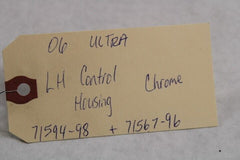 06 ULTRA
LH Control Chrome
Housing
71594-98 + 71567-96